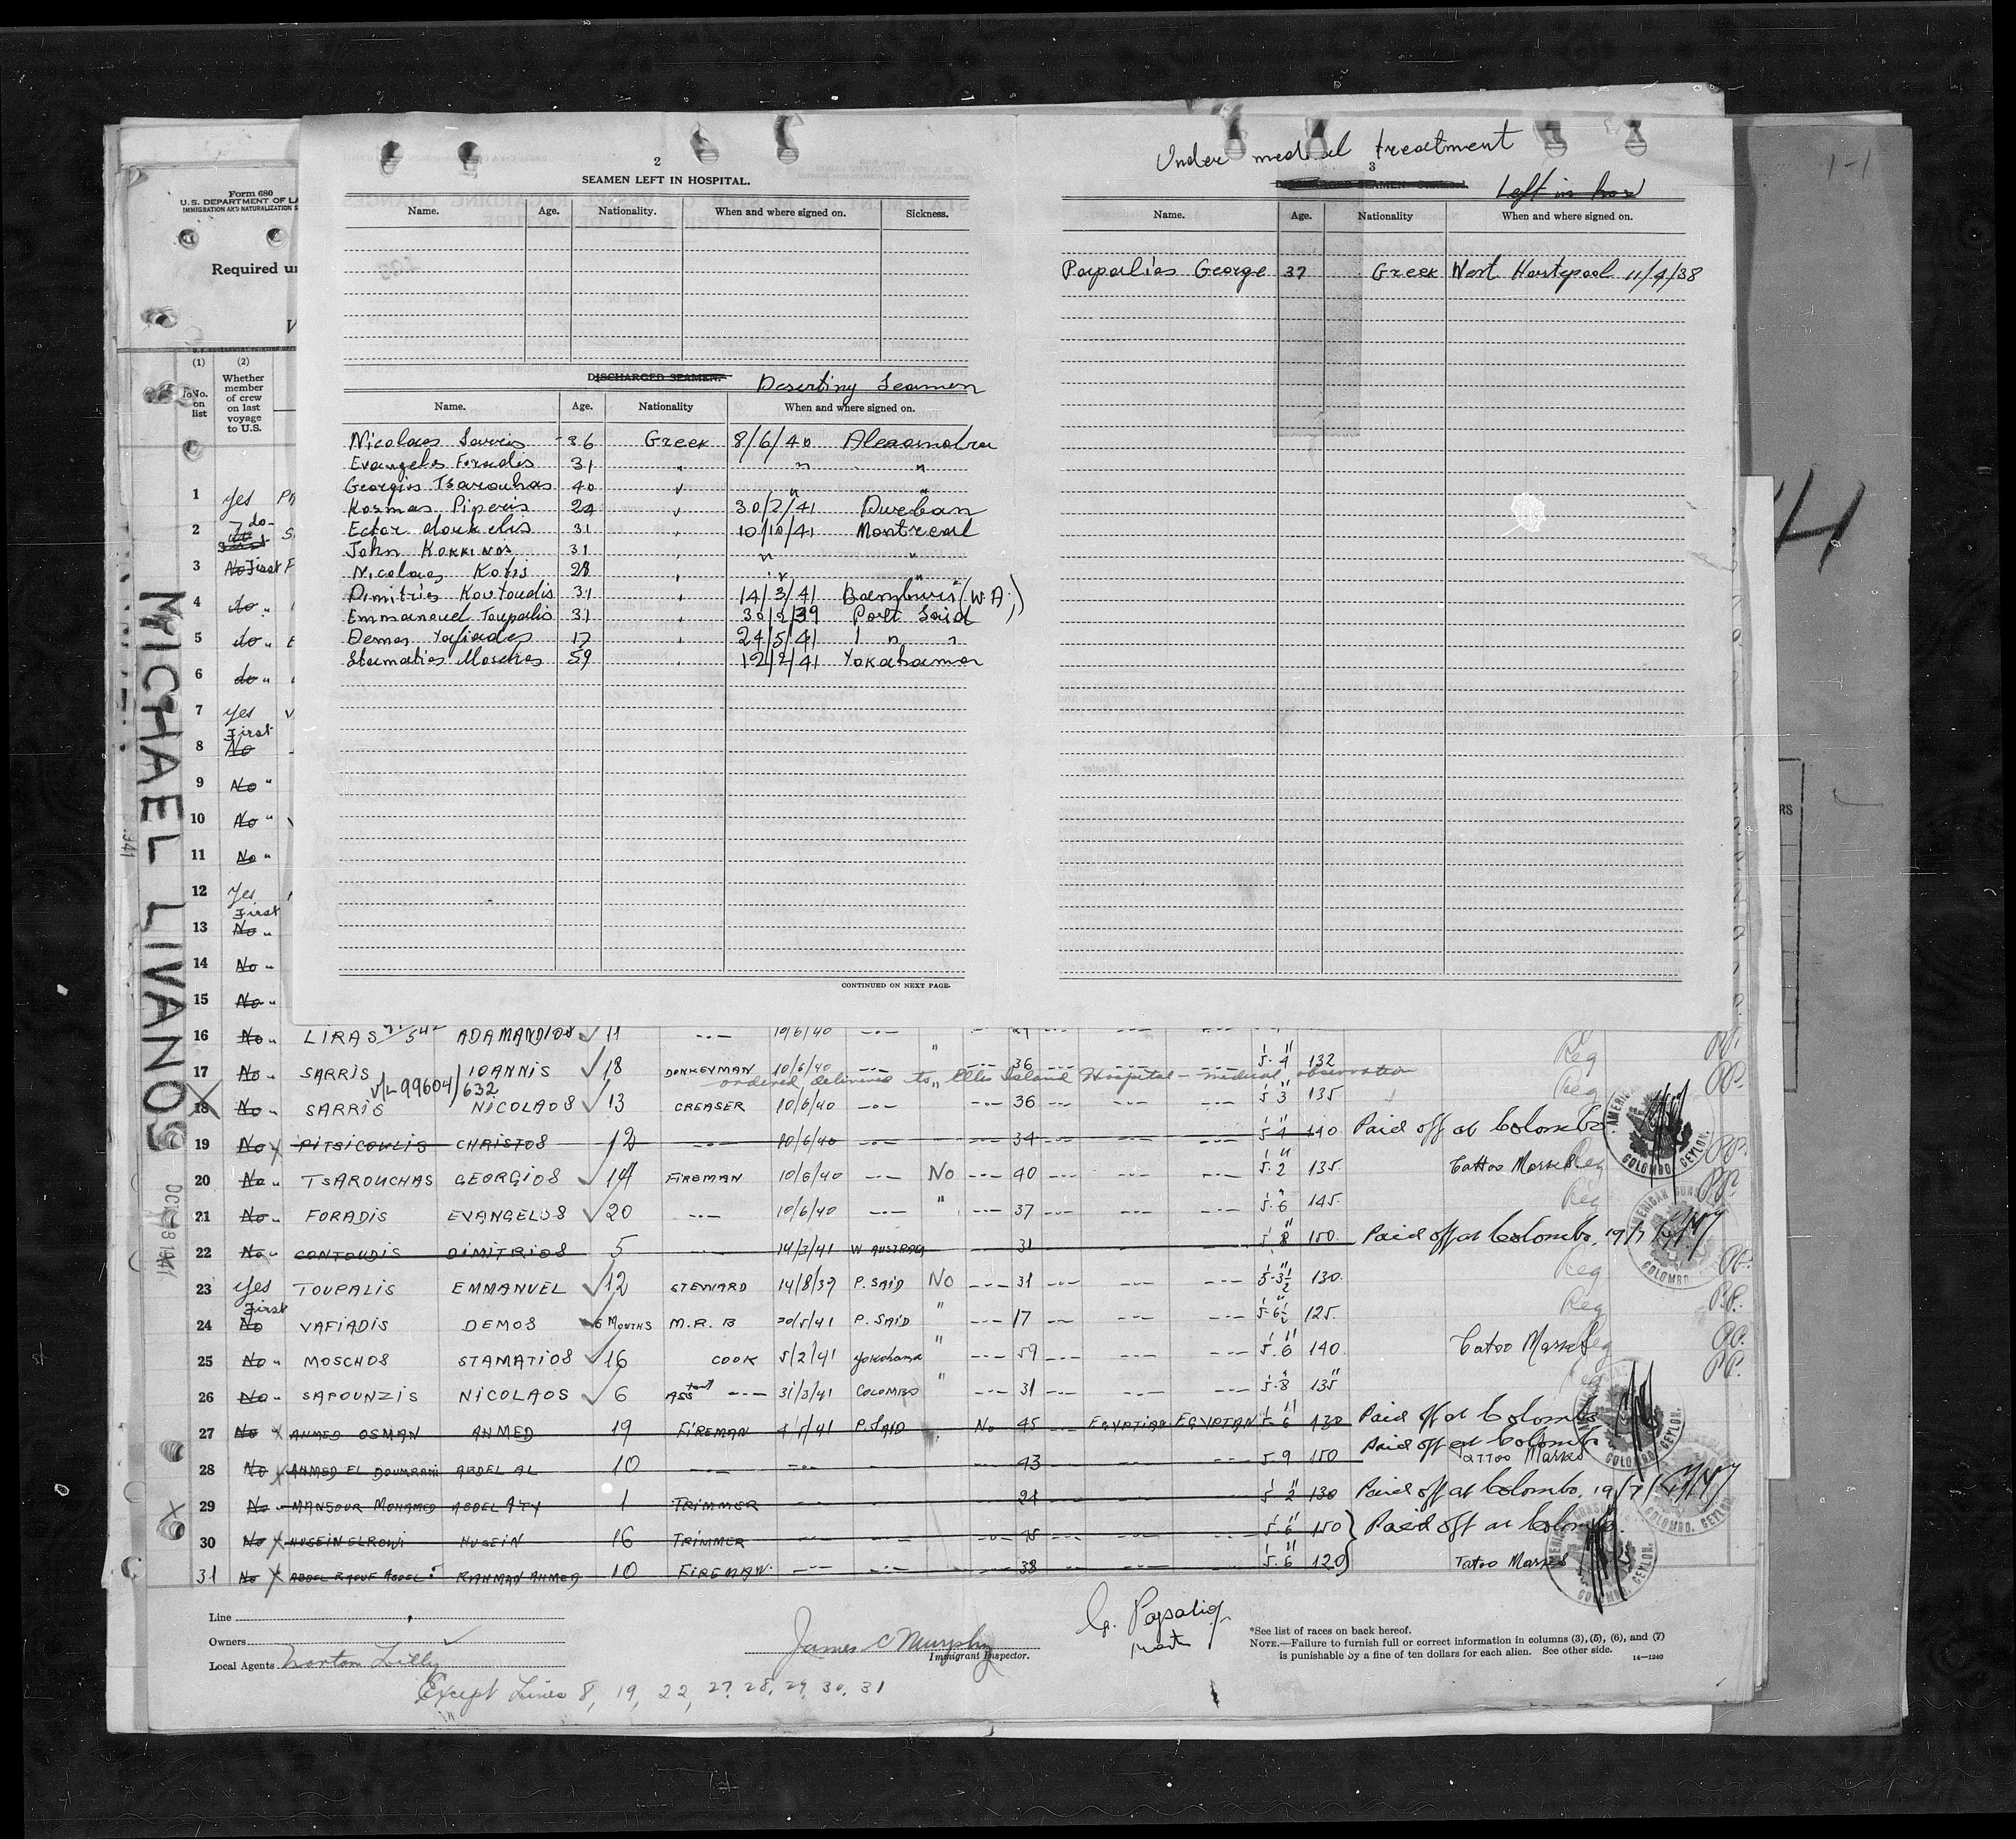 Form 680
U.S. DEPARTMENT OF LA
IMMIGRATION AND NATURALIZATION S
Required u
MICHAEL LIVANOS
(1) (2)
No. on list
Whether member of crew on last voyage to U.S.
2
SEAMEN LEFT IN HOSPITAL.
Name. Age. Nationality. When and where signed on. Sickness.
DISCHARGED SEAMEN. Deserting Seamen
Name. Age. Nationality When and where signed on.
Nicolaos Sarris 36 Greek 8/6/40 Alexandria
Evangelos Foradis 31 " " "
Georgios Tsarouhas 40 " " "
Kosmas Piperis 24 " 30/2/41 Durban
Ector 31 " 10/10/41 Montreal
John Kokkinos 31 " " "
Nicolaos Kotis 28 " " "
Dimitrios Koutoudis 31 " 14/3/41 (W.A.)
Emmanouel Toupalis 31 " 30/2/39 Port Said
Demos 17 " 24/5/41 " "
Stamatios Moschos 59 " 12/2/41 Yokahama
CONTINUED ON NEXT PAGE.
Under medical treatment
3
Left in hos
Name. Age. Nationality When and where signed on.
Papalios George 37 Greek West Hartepool 11/4/38
1 yes
2 do
3 No First
4 do "
5 do "
6 do "
7 yes
8 First No
9 No "
10 No "
11 No "
12 Yes
13 First No "
14 No "
15 No "
16 No " LIRAS ADAMANDIOS 11 10/6/40
17 No " SARRIS IOANNIS 18 DONKEYMAN 10/6/40 36 5' 4" 132 Reg
ordered delivered to Ellis Island Hospital - medical observation
99604/632
18 No " SARRIS NICOLAOS 13 GREASER 10/6/40 36 5' 3" 135 Reg
19 No PITSICOULIS CHRISTOS 12 10/6/40 34 5' 4" 140 Paid off at Colombo.
20 No " TSAROUCHAS GEORGIOS 14 FIREMAN 10/6/40 No 40 5' 2" 135. Tattoo Marks Reg
21 No " FORADIS EVANGELOS 20 10/6/40 " 37 5' 6" 145. Reg
22 No " CONTOUDIS DIMITRIOS 5 14/3/41 W AUSTRAL 31 5' 8" 150. Paid off at Colombo, 19/7
23 yes TOUPALIS EMMANUEL 12 STEWARD 14/8/37 P. SAID No 31 5' 3½" 130. Reg
24 First No VAFIADIS DEMOS 6 MONTHS M.R.B 20/5/41 P. SAID " 17 5' 6½" 125. Reg
25 No " MOSCHOS STAMATIOS 16 COOK 5/2/41 Yokohama " 59 5' 6" 140. Tatoo Marks Reg
26 No " SAPOUNZIS NICOLAOS 6 ASStant 31/3/41 COLOMBO " 31 5' 8" 135
27 No AHMED OSMAN AHMED 19 FIREMAN P. SAID No 45 EGYPTIAN EGYPTIAN 5' 6" 130 Paid off at Colombo
28 No AHMED EL DOUMRANI ABDEL AL 10 43 5 9 150 Paid off at Colombo Tattoo Marks
29 No MANSOUR MOHAMED ABDEL ATY 1 TRIMMER 21 5' 2" 130 Paid off at Colombo, 19/7
30 No HUSEIN ELROWI HUSEIN 16 TRIMMER 45 5' 6" 150 Paid off at Colombo.
31 No ABDEL RAOUF ABDEL RAHMAN AHMED 10 FIREMAN 38 5' 6" 120 Tatoo Marks
AMERICAN COLOMBO, CEYLON.
Line
Owners
Local Agents Norton Lilly
James C Murphy
Immigrant Inspector.
G. Papalios
*See list of races on back hereof.
NOTE.—Failure to furnish full or correct information in columns (3), (5), (6), and (7)
is punishable by a fine of ten dollars for each alien. See other side. 14—1240
Except Lines 8, 19, 22, 27, 28, 29, 30, 31